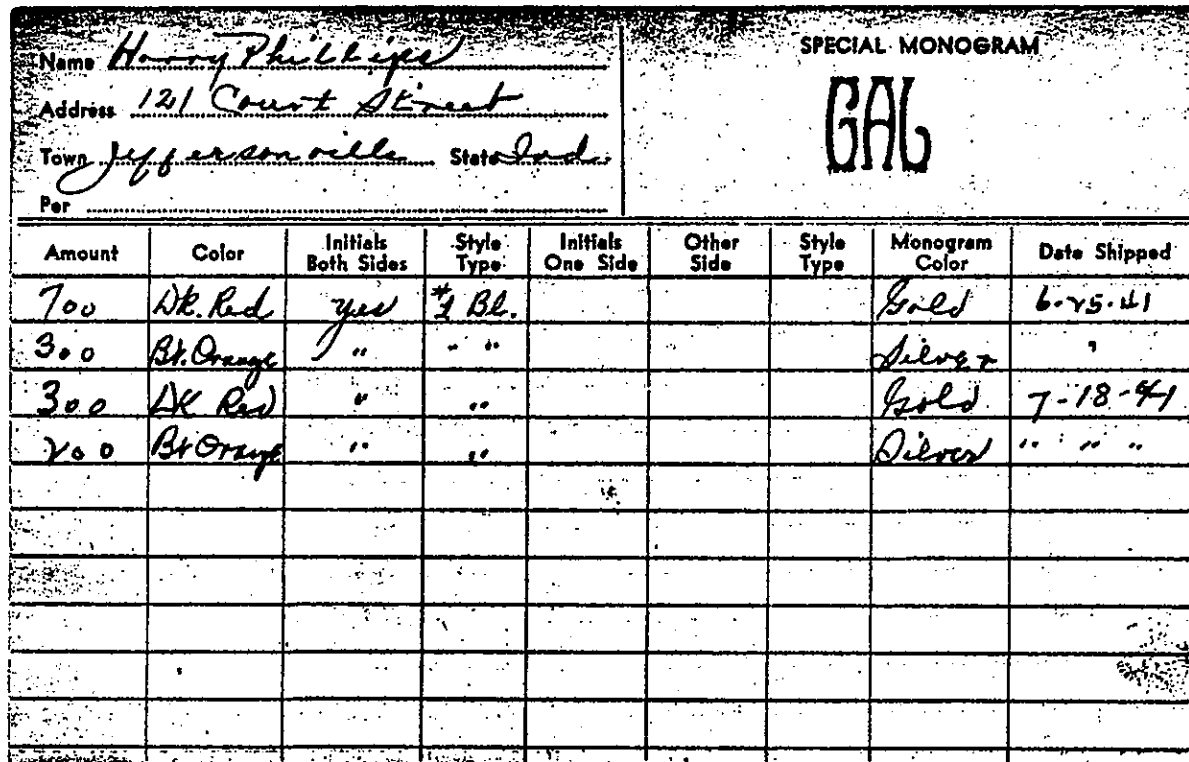 Name Harry Phillips
Address 121 Court Street
Town Jeffersonville State Ind.
Per
SPECIAL MONOGRAM
GAL
Amount Color Initials Both Sides Style Type Initials One Side Other Side Style Type Monogram Color Date Shipped
700 Dk. Red yes #1 Bl. Gold 6-25-41
300 Bt. Orange " " " Silver "
300 Dk Red " " Gold 7-18-41
200 Bt Orange " " Silver " " "